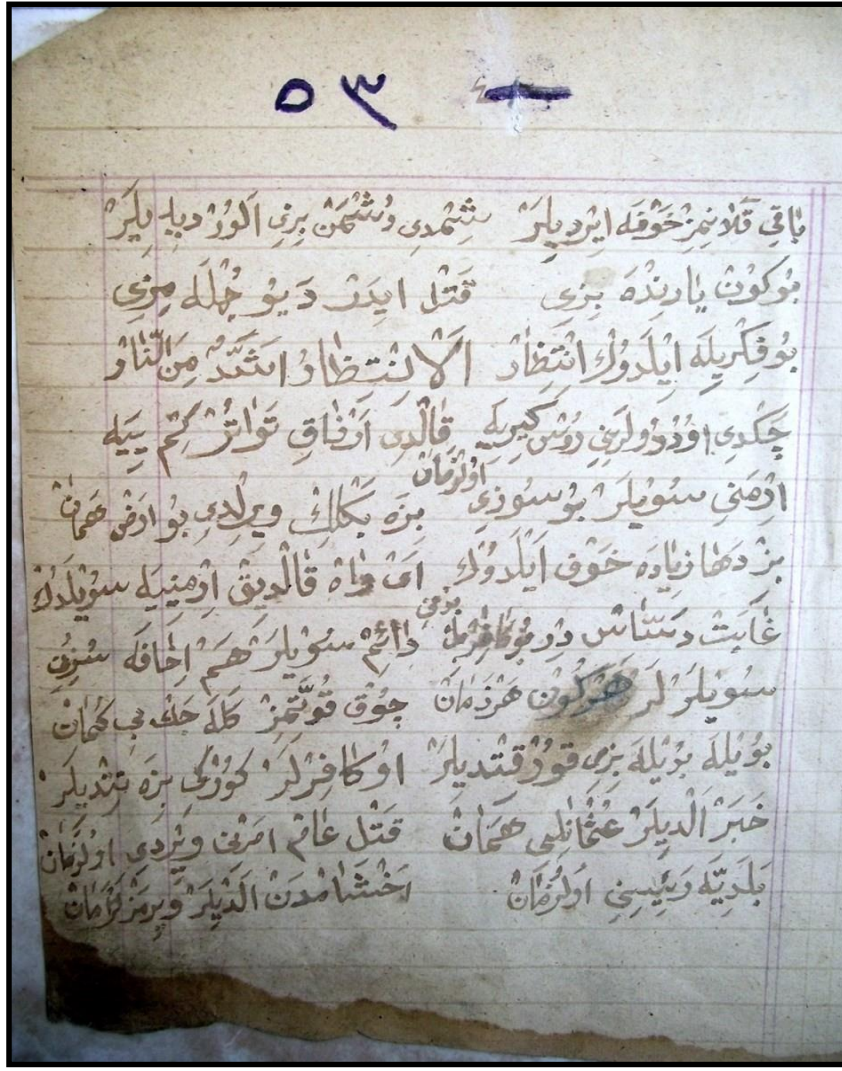 ٥٣
باقي قلانمز خوفه ايرديلر شمدى دشمن بزى الور ديه بيلر
بوكون يارنده بزى قتل ايدر ديو جمله مزى
بو فكريله ايلدوك انتظار الانتظار اشد من النار
چكدى اوردولرينى روس كيريه قالدى ارفاق تواتر كم ييه
ارمنى سويلر بو سوزى اول زمان بزه بكلك ويرلدى بو ارض همان
بز دها زياده خوف ايلدوك اى واه قالديق ارمنييه سويلدك
غايت دستاس در بو كافر بزمى دائم سويلر هم اخافه سزى
سويلرلر هركون هر زمان چوق قوتمز كله جك بى كمان
بويله بويله بزى قورقتديلر او كافرلر كوزكى بزه تتديلر
خبر الديلر عثمانلى همان قتل عام امرنى ويردى اول زمان
بلديه رئيسنى اول زمان اخشامدن الديلر ويرمزلر امان